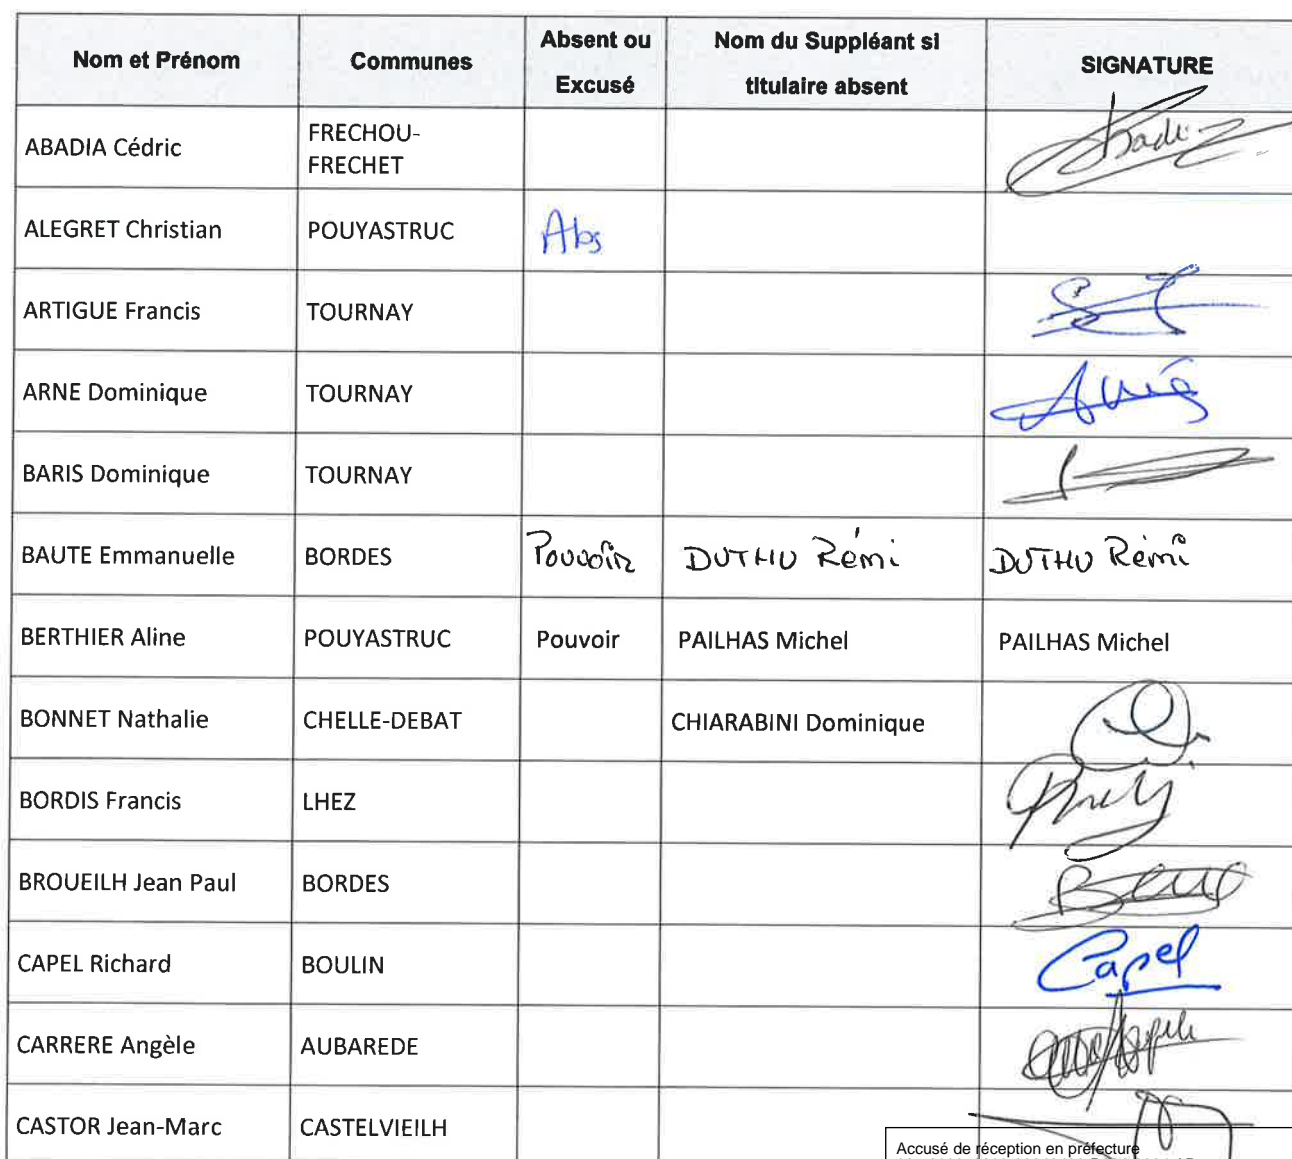 Nom et Prénom Communes Absent ou Excusé Nom du Suppléant si titulaire absent SIGNATURE
ABADIA Cédric FRECHOU-FRECHET
ALEGRET Christian POUYASTRUC Abs
ARTIGUE Francis TOURNAY
ARNE Dominique TOURNAY
BARIS Dominique TOURNAY
BAUTE Emmanuelle BORDES Pouvoir DUTHU Rémi DUTHU Rémi
BERTHIER Aline POUYASTRUC Pouvoir PAILHAS Michel PAILHAS Michel
BONNET Nathalie CHELLE-DEBAT CHIARABINI Dominique
BORDIS Francis LHEZ
BROUEILH Jean Paul BORDES
CAPEL Richard BOULIN Capel
CARRERE Angèle AUBAREDE
CASTOR Jean-Marc CASTELVIEILH
Accusé de réception en préfecture